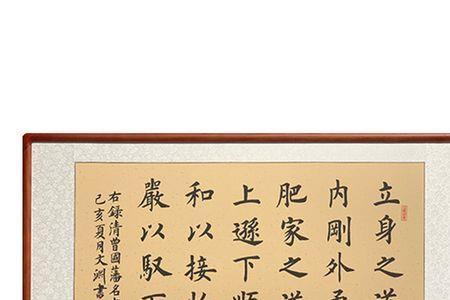 立身之道
内剛外
肥家之道
上遜下順
和以接
嚴以馭
右錄清曾國藩名
己亥夏月文淵書